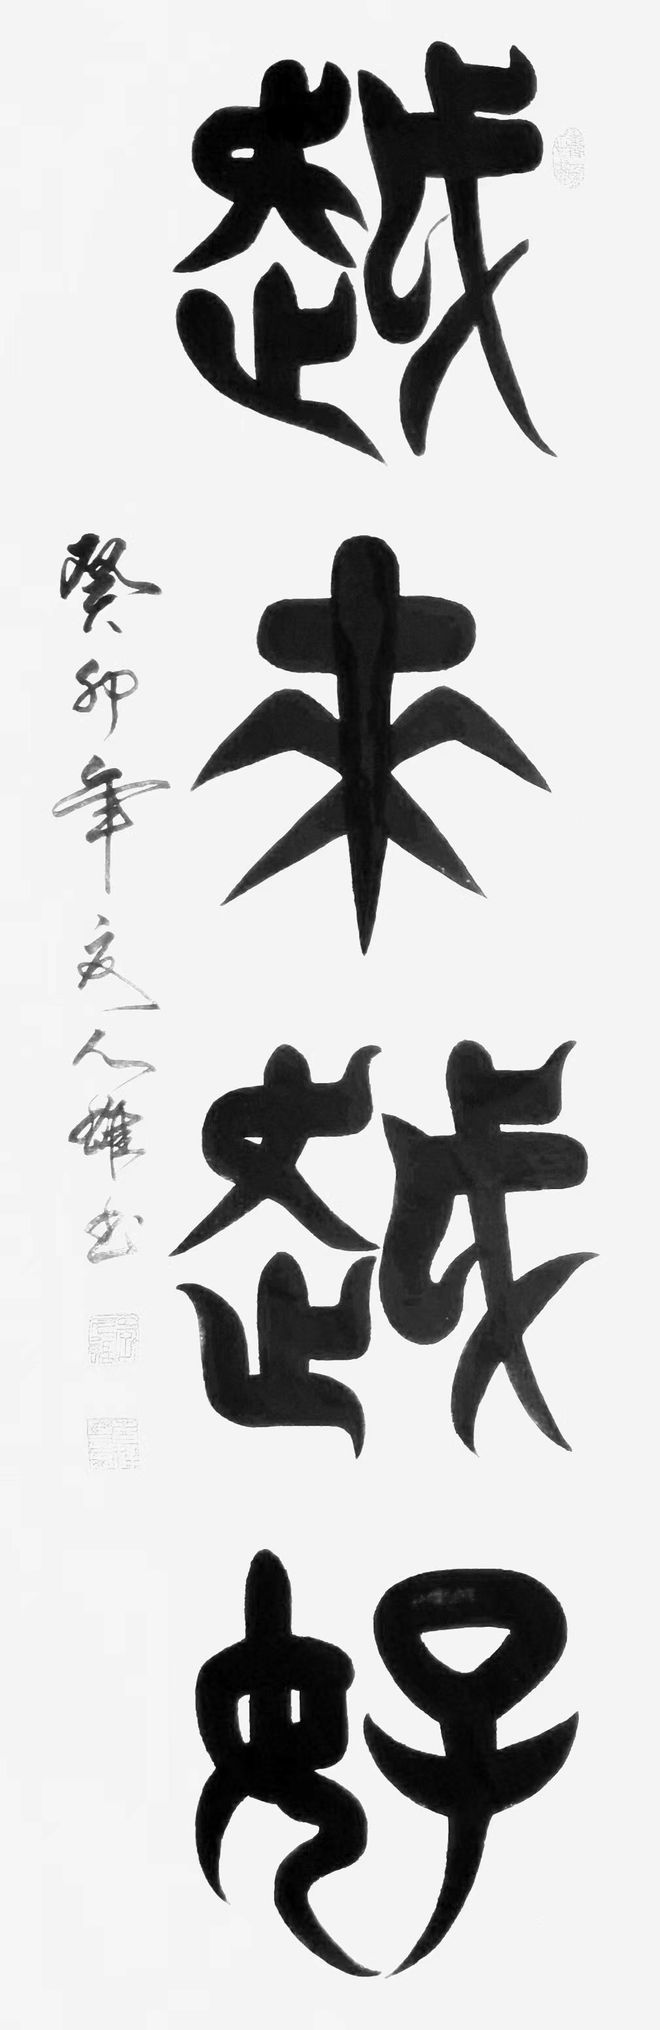 越来越好
癸卯年夏心雄书